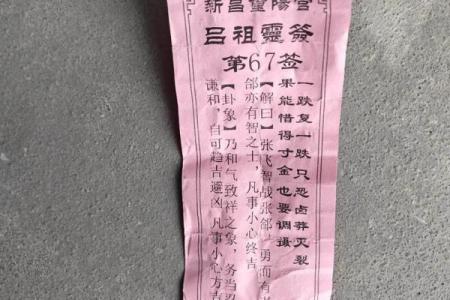 新昌重陽宫
吕祖靈簽
第67签
一跌复一跌只恐卤莽灭裂
果能惜得寸金也要调摄
【解曰】张飞智战张郃,勇而有
郃亦有智之士,凡事小心终吉
【卦象】乃和气致祥之象,务当忍
谦和,自可趋吉避凶,凡事小心方吉